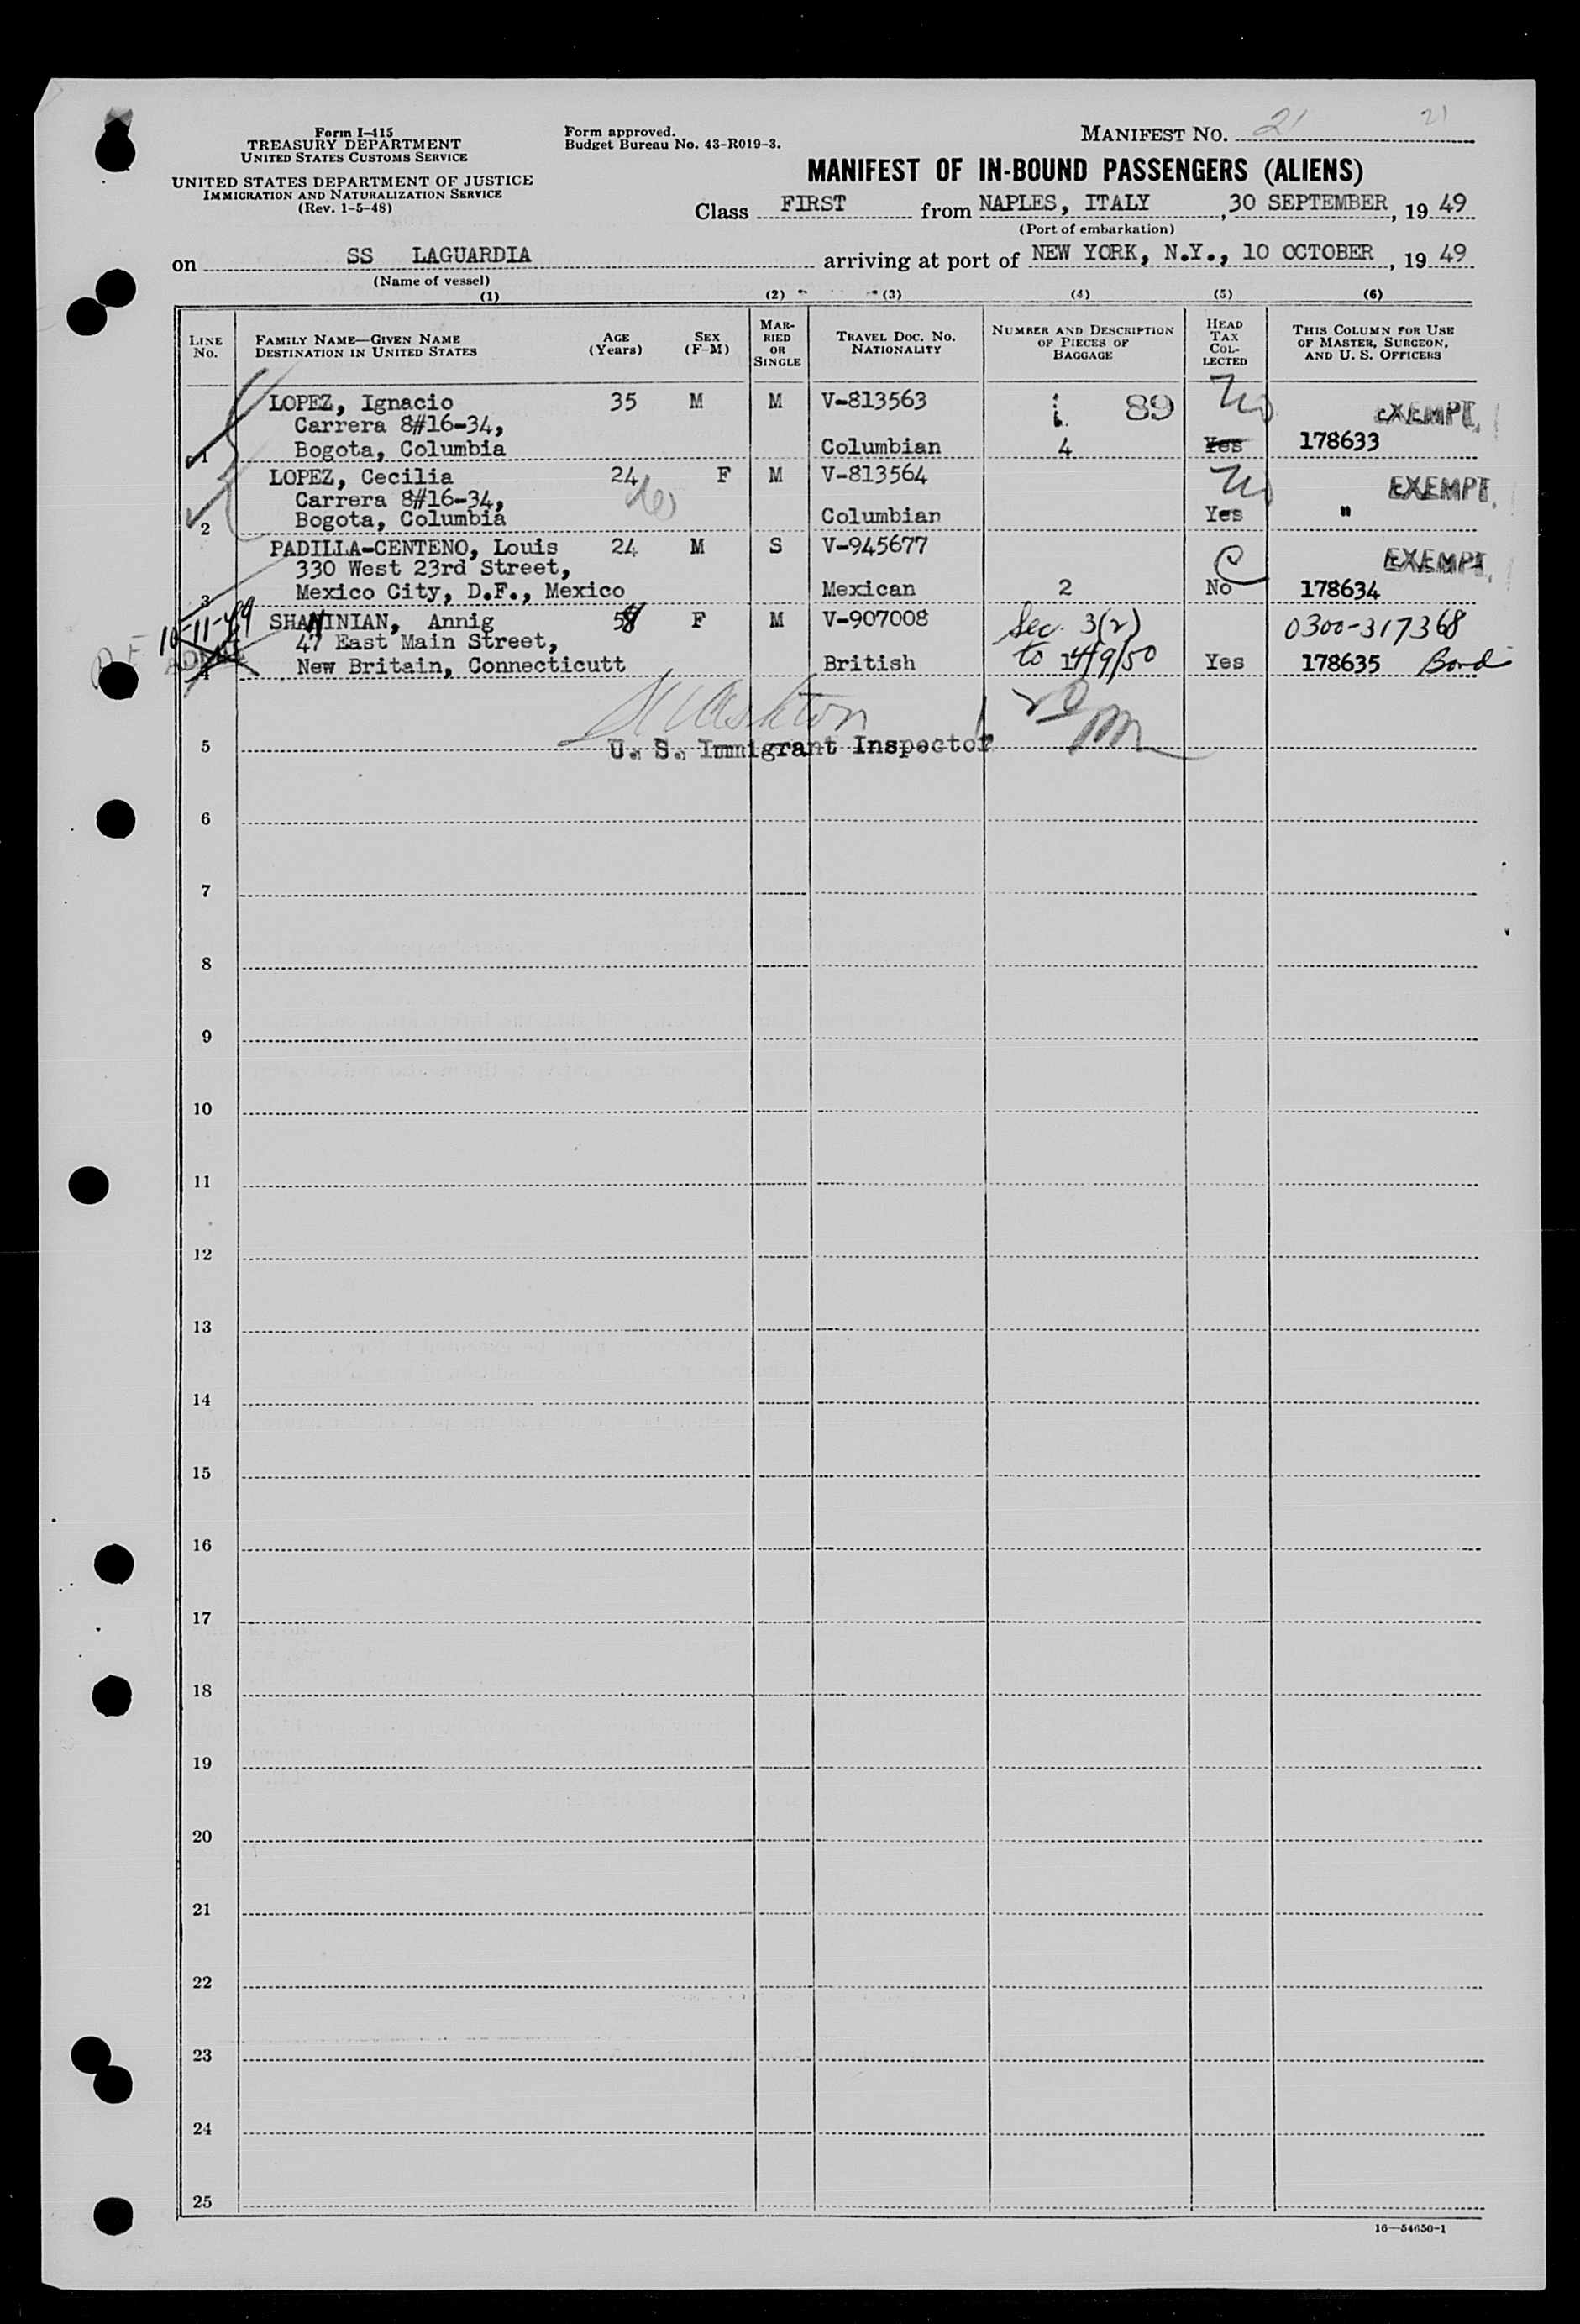 Form I-415
TREASURY DEPARTMENT
UNITED STATES CUSTOMS SERVICE
UNITED STATES DEPARTMENT OF JUSTICE
IMMIGRATION AND NATURALIZATION SERVICE
(Rev. 1-5-48)
Form approved.
Budget Bureau No. 43-R019-3.
MANIFEST NO. 21 21
MANIFEST OF IN-BOUND PASSENGERS (ALIENS)
Class FIRST from NAPLES, ITALY, 30 SEPTEMBER, 1949
(Port of embarkation)
on SS LAGUARDIA arriving at port of NEW YORK, N.Y., 10 OCTOBER, 1949
(Name of vessel)
(1) (2) (3) (4) (5) (6)
LINE No. FAMILY NAME—GIVEN NAME DESTINATION IN UNITED STATES AGE (Years) SEX (F-M) MARRIED OR SINGLE TRAVEL DOC. NO. NATIONALITY NUMBER AND DESCRIPTION OF PIECES OF BAGGAGE HEAD TAX COLLECTED THIS COLUMN FOR USE OF MASTER, SURGEON, AND U. S. OFFICERS
LOPEZ, Ignacio 35 M M V-813563 89 EXEMPT
Carrera 8#16-34,
1 Bogota, Columbia Columbian 4 Yes 178633
LOPEZ, Cecilia 24 F M V-813564 EXEMPT
Carrera 8#16-34,
2 Bogota, Columbia Columbian Yes "
PADILLA-CENTENO, Louis 24 M S V-945677 C EXEMPT
330 West 23rd Street,
3 Mexico City, D.F., Mexico Mexican 2 No 178634
10-11-49 SHANINIAN, Annig F M V-907008 Sec. 3(2) 0300-317368
47 East Main Street, to 14/9/50
4 New Britain, Connecticutt British Yes 178635 Bond
5 U. S. Immigrant Inspector
6
7
8
9
10
11
12
13
14
15
16
17
18
19
20
21
22
23
24
25
16—54650-1